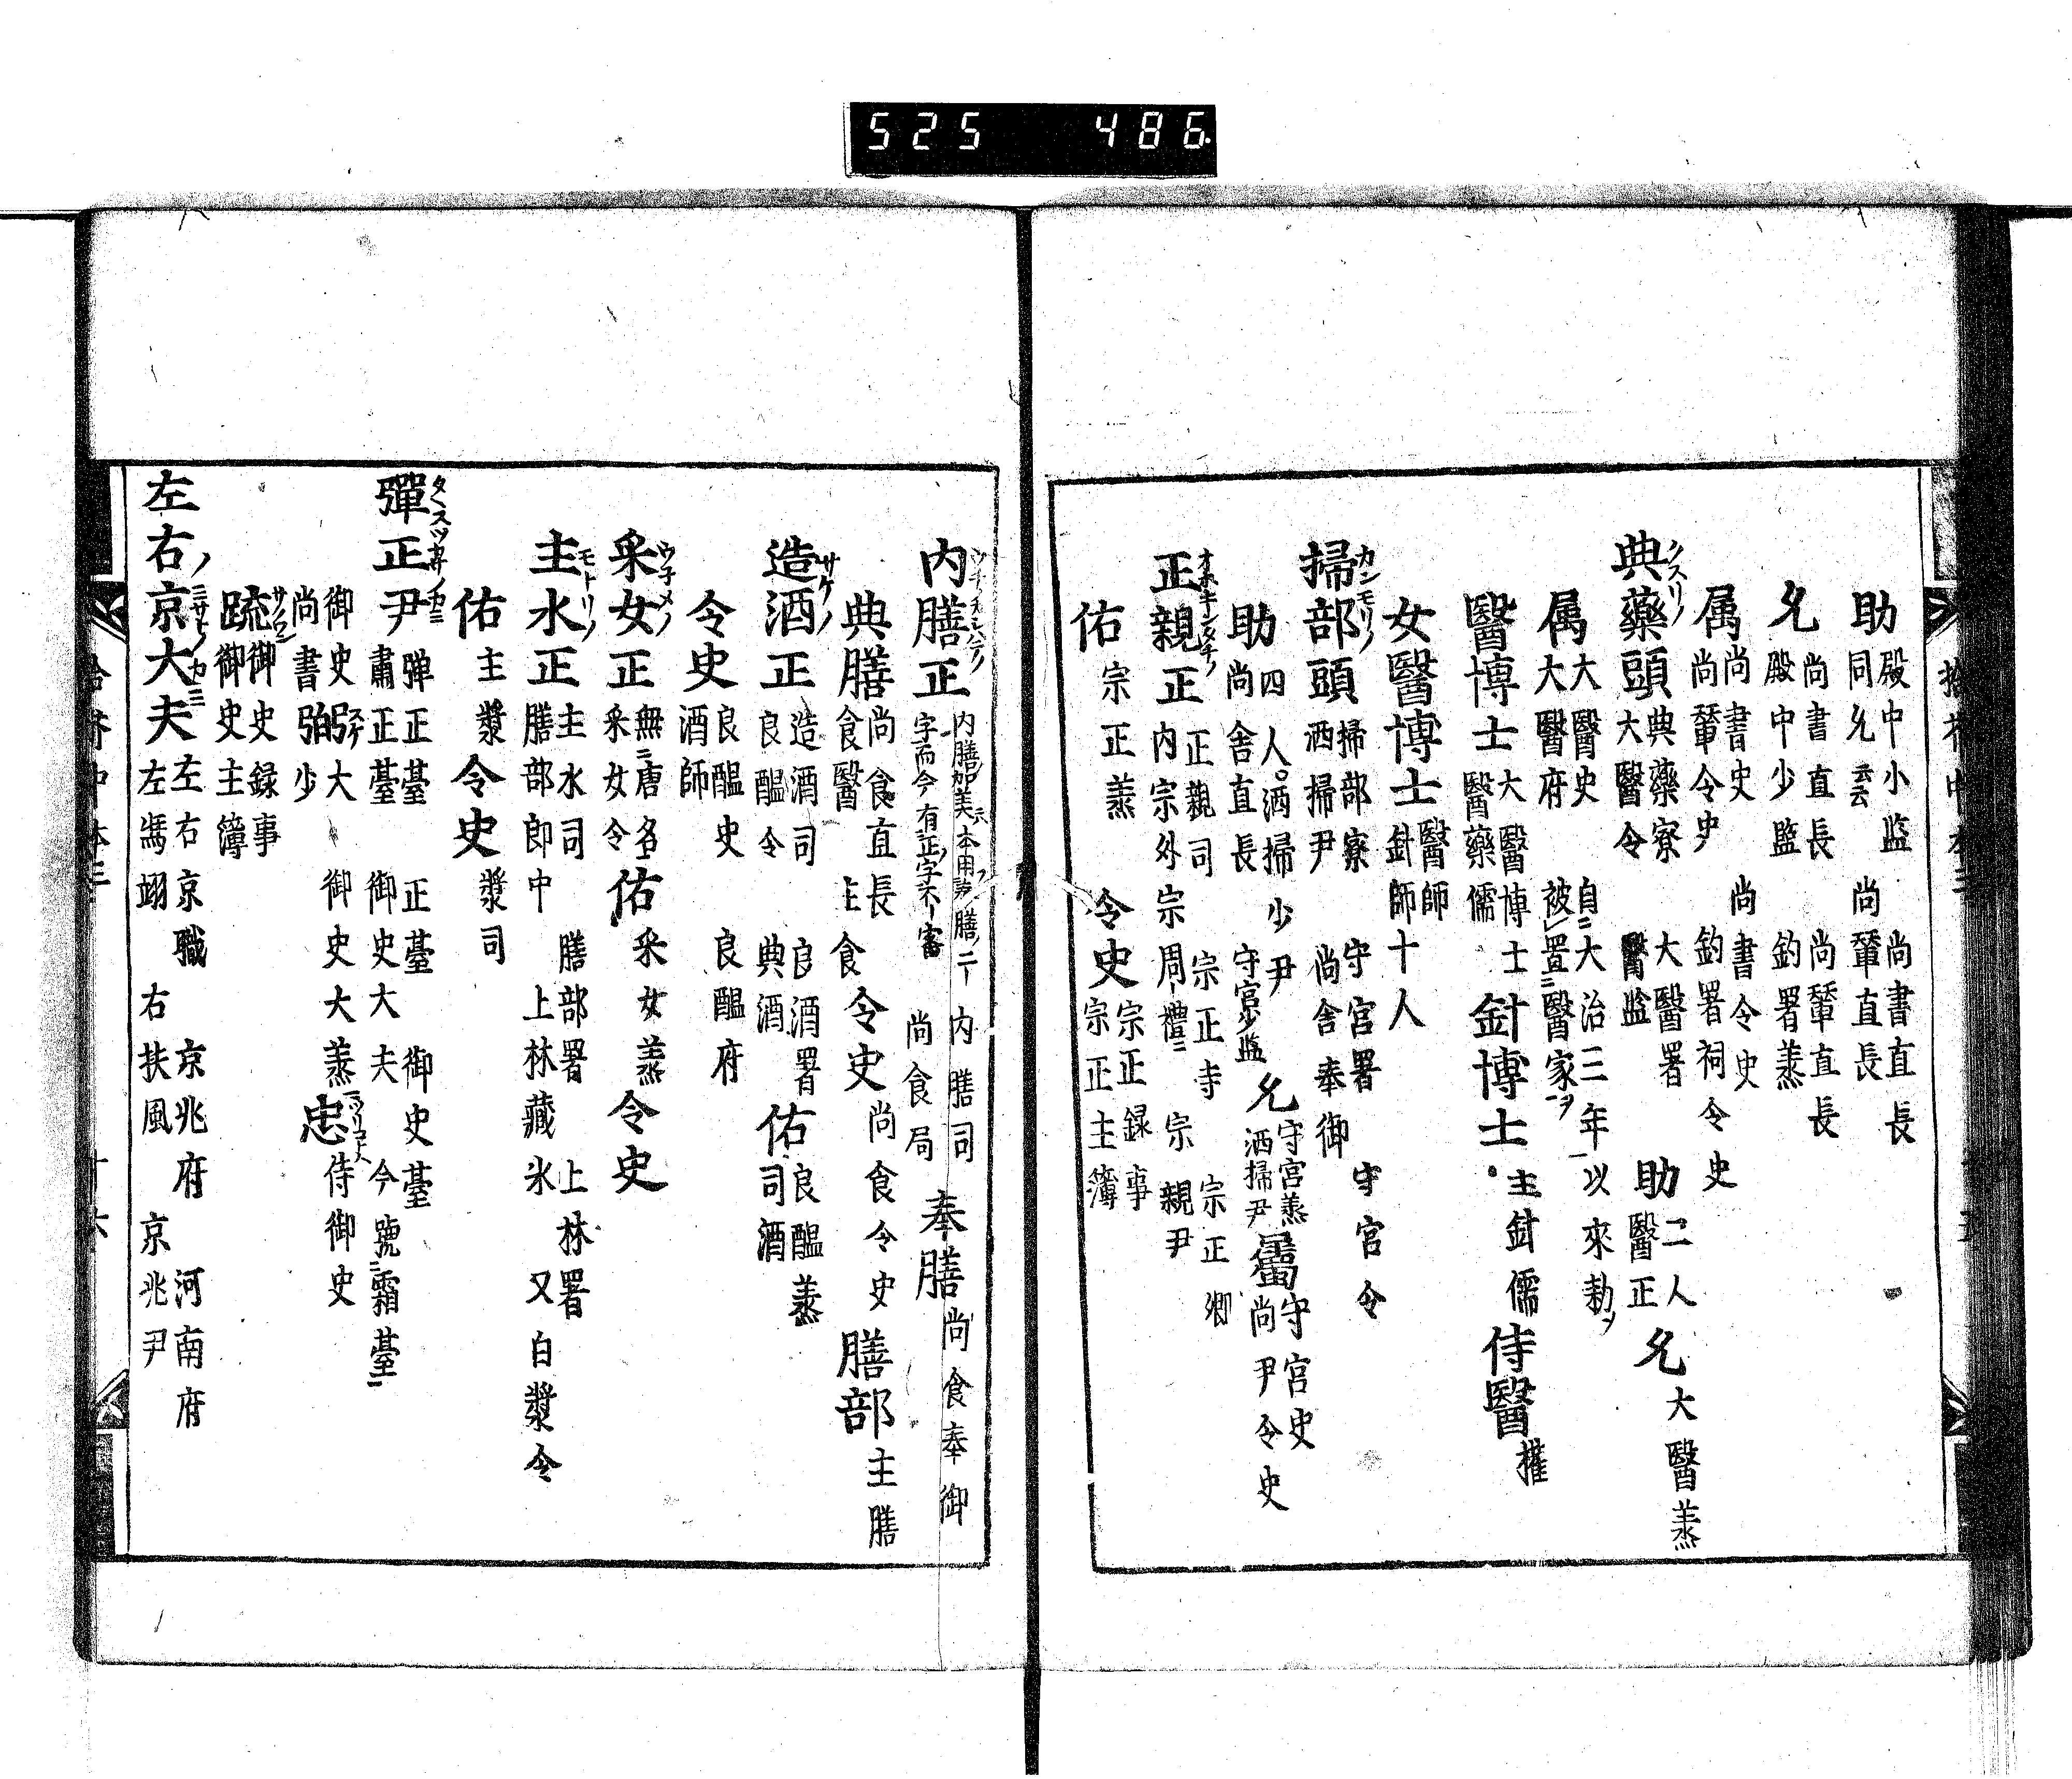 525 486
助 殿中小監 尚書直長
同允云云 尚輦直長
允 尚書直長 尚輦直長
殿中少監 鈞署羡
属 尚書史 尚書令史
尚輦令史 鈞署祠令史
典藥頭 クスリノ 典藥寮 大醫署 助 二人 允 大醫羡
大醫令 醫監 醫正
属 大醫史 自二大治三年一以來勅ヲ
大醫府 被レ置二醫家一ヲ
醫博士 大醫博士 針博士 主針儒 侍醫 権
醫藥儒
女醫博士 醫師
針師十人
掃部頭 カンモリノ 掃部寮 守宮署 守宮令
洒掃尹 尚舎奉御
助 四人 洒掃少尹 允 守宮羡 属 守宮史
尚舎直長 守宮少監 洒掃尹 尚尹令史
正親正 正親司 宗正寺 宗正卿
内宗外宗周禮 宗親尹
佑 宗正羡 令史 宗正録事
宗正主簿
内膳正 内膳司 奉膳 尚食奉御
字而今有正字不審 尚食局
典膳 尚食直長 主食 令史 尚食令史 膳部 主膳
食醫
造酒正 サケノ 造酒司 良酒署 佑 良醞羡
良醞令 典酒 司酒
令史 良醞史 良醞府
酒師
采女正 ウ子メノ 無二唐名一 佑 采女羡 令史
采女令
主水正 モトリノ 主水司 膳部署 上林署
膳部郎中 上林藏氷 又白漿令
佑 主漿 令史 漿司
彈正尹 弾正臺 正臺 御史臺
肅正臺 御史大夫 今號二霜臺一
御史弼 大 御史大羡 忠 侍御史
尚書弼 少 御史
疏 サクワン 御史録事
御史主簿
左右京大夫 左右京職 京兆府 河南府
左馮翊 右扶風 京兆尹